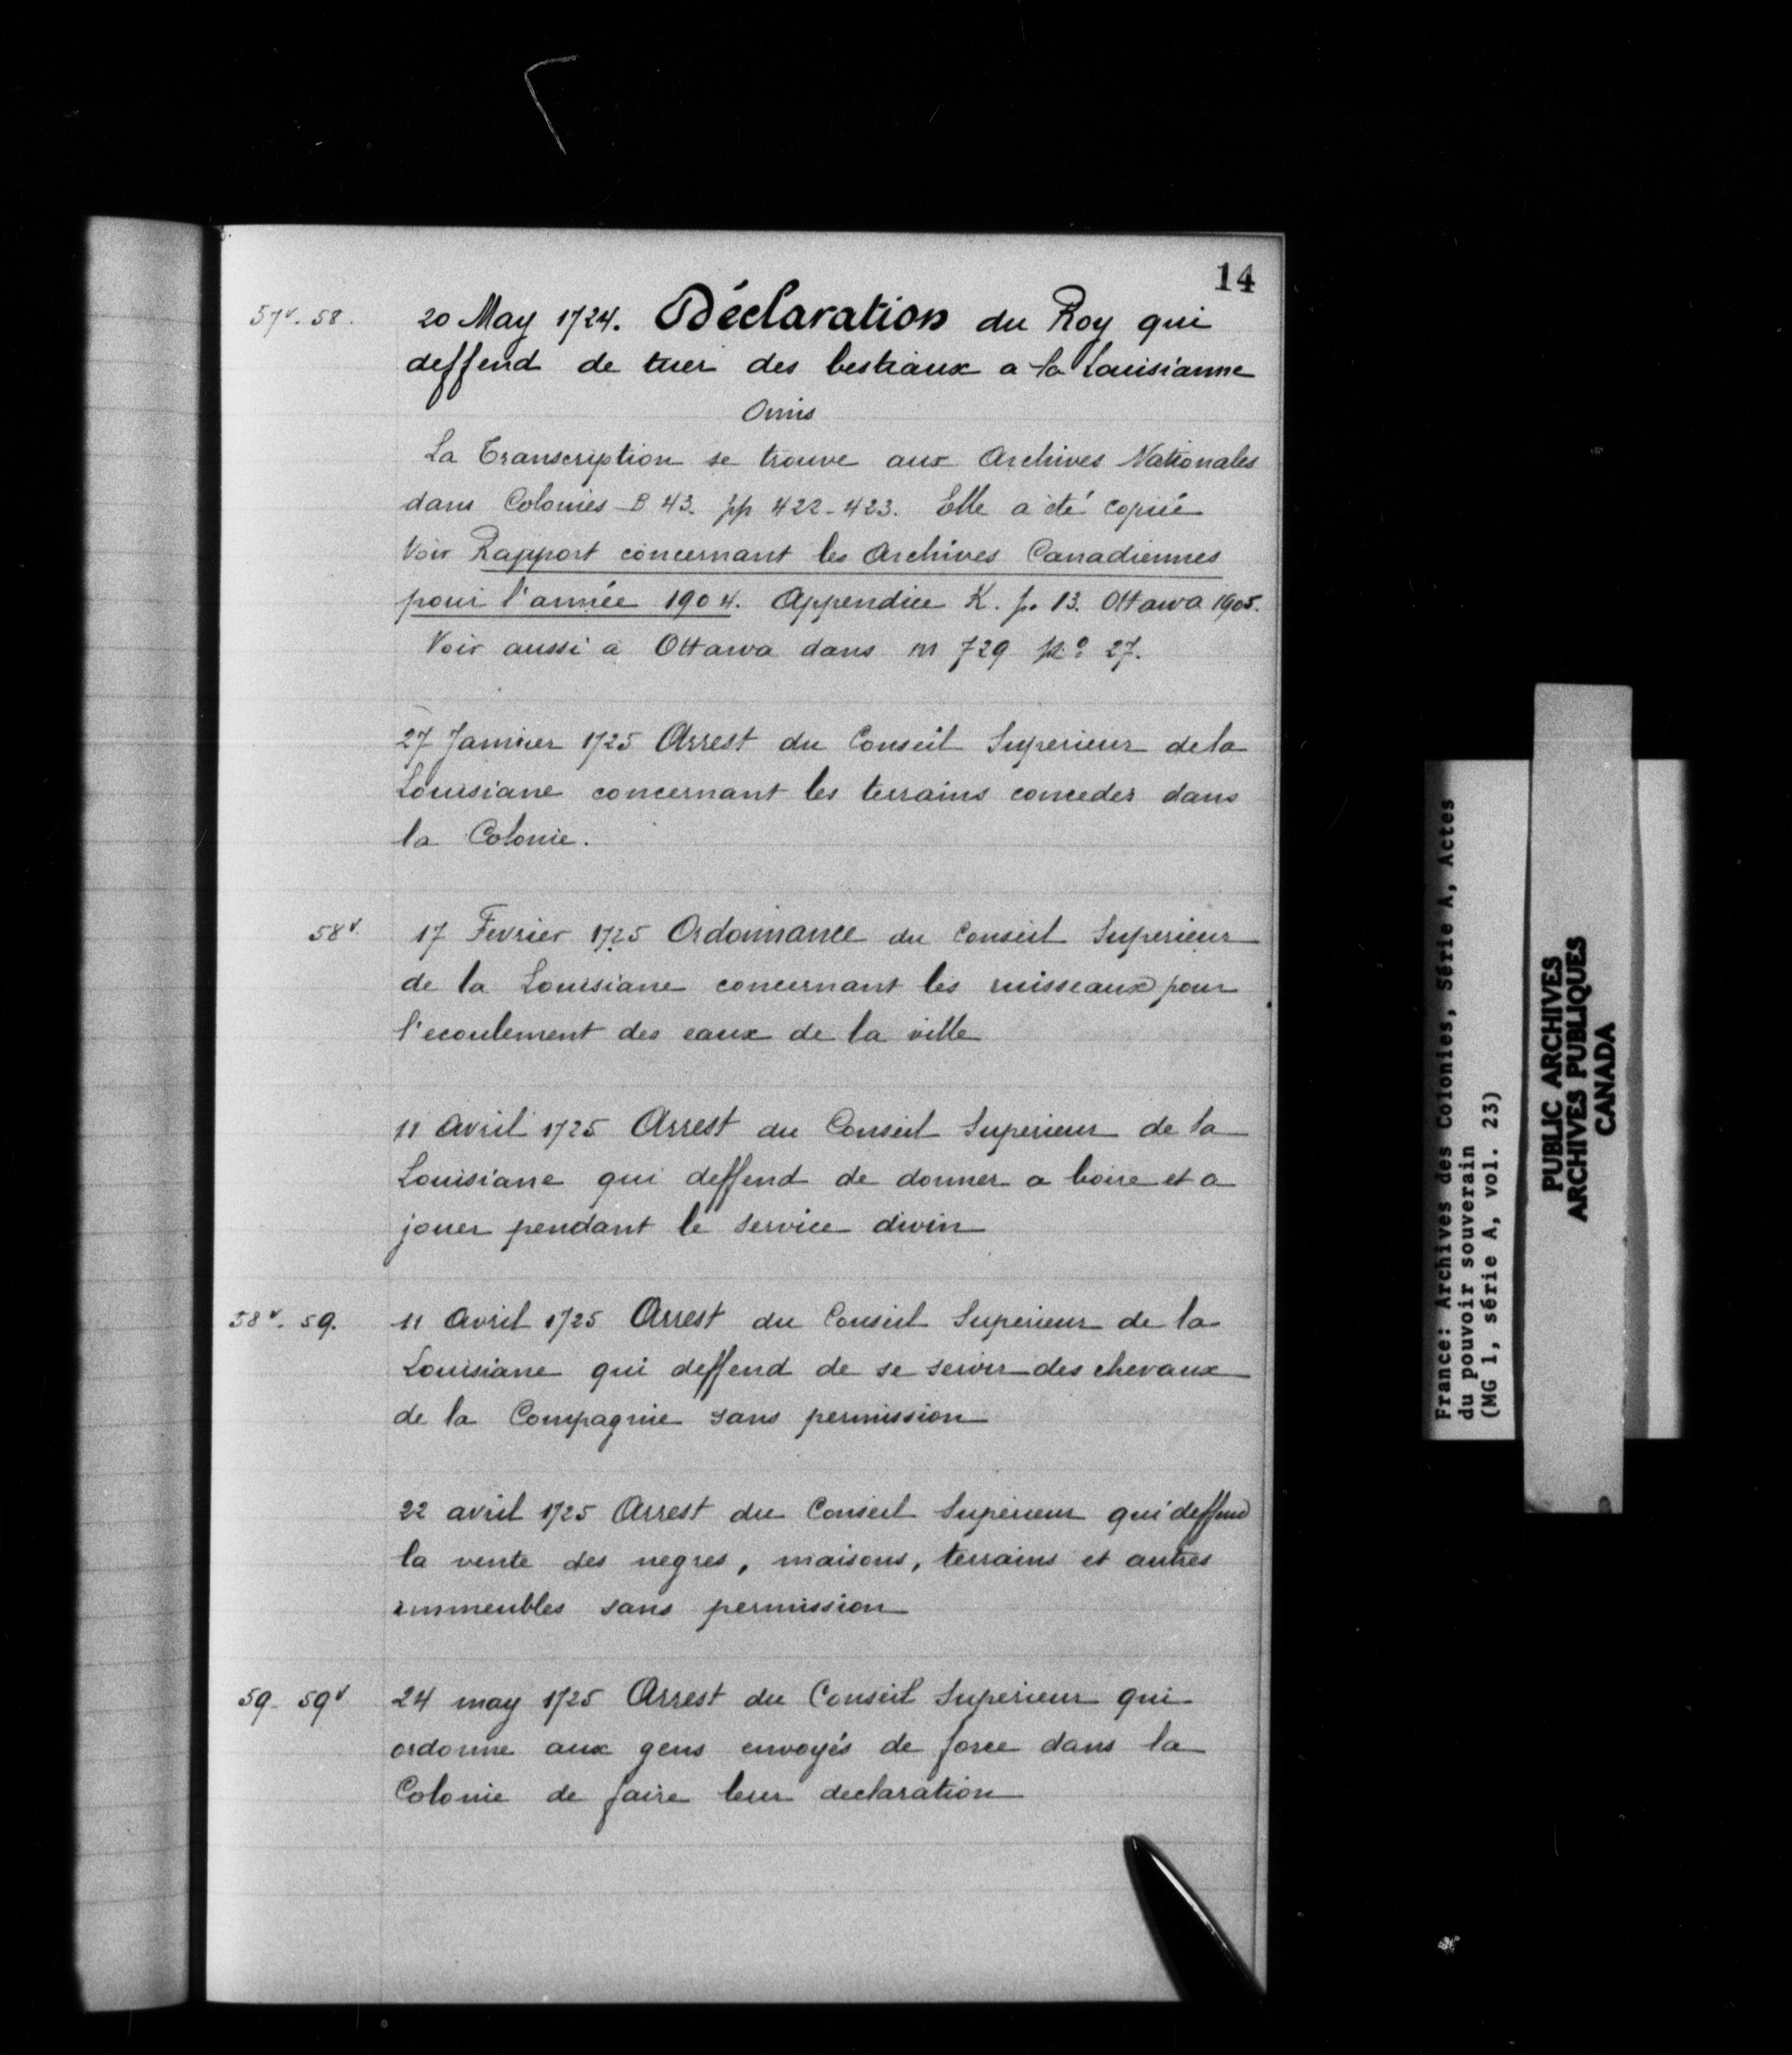 14
57v. 58. 20 May 1724. Déclaration du Roy qui
deffend de tuer des bestiaux a la Louisianne
Omis
La Transcription se trouve aux Archives Nationales
dans Colonies B 43. pp 422-423. Elle a été copiée
Voir Rapport concernant les Archives Canadiennes
pour l'année 1904. Appendice K. p. 13. Ottawa 1905.
Voir aussi a Ottawa dans m 729 27.
27 Janvier 1725 Arrest du Conseil Superieur de la
Louisiane concernant les terrains concedés dans
la Colonie.
58v. 17 Fevrier 1725 Ordonnance du Conseil Superieur
de la Louisiane concernant les ruisseaux pour
l'ecoulement des eaux de la ville
11 Avril 1725 Arrest du Conseil Superieur de la
Louisiane qui deffend de donner a boire et a
jouer pendant le service divin
58v. 59. 11 Avril 1725 Arrest du Conseil Superieur de la
Louisiane qui deffend de se servir des chevaux
de la Compagnie sans permission
22 avril 1725 Arrest du Conseil Superieur qui deffend
la vente des negres, maisons, terrains et autres
immeubles sans permission
59- 59v 24 may 1725 Arrest du Conseil Superieur qui
ordonne aux gens envoyés de force dans la
Colonie de faire leur declaration
France: Archives des Colonies, Série A, Actes
du pouvoir souverain
(MG 1, série A, vol. 23)
PUBLIC ARCHIVES
ARCHIVES PUBLIQUES
CANADA